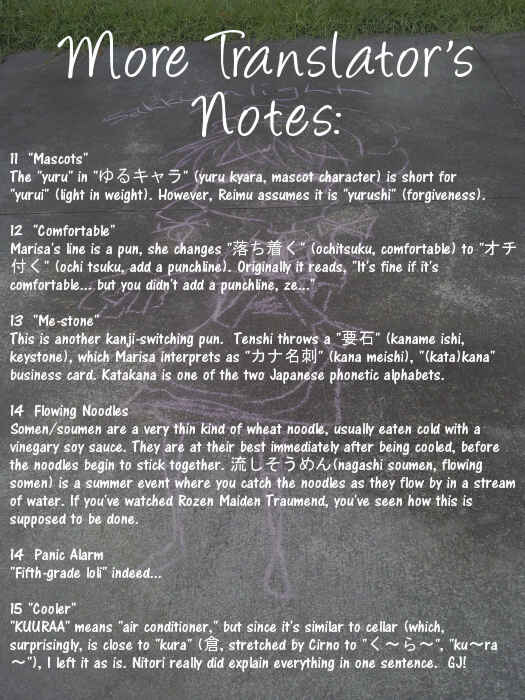 More Translator's
Notes:
11 "Mascots"
The "yuru" in "ゆるキャラ" (yuru kyara, mascot character) is short for
"yurui" (light in weight). However, Reimu assumes it is "yurushi" (forgiveness).
12 "Comfortable"
Marisa's line is a pun, she changes "落ち着く" (ochitsuku, comfortable) to "オチ
付く" (ochi tsuku, add a punchline). Originally it reads, "It's fine if it's
comfortable... but you didn't add a punchline, ze..."
13 "Me-stone"
This is another kanji-switching pun. Tenshi throws a "要石" (kaname ishi,
keystone), which Marisa interprets as "カナ名刺" (kana meishi), "(kata)kana"
business card. Katakana is one of the two Japanese phonetic alphabets.
14 Flowing Noodles
Somen/soumen are a very thin kind of wheat noodle, usually eaten cold with a
vinegary soy sauce. They are at their best immediately after being cooled, before
the noodles begin to stick together. 流しそうめん(nagashi soumen, flowing
somen) is a summer event where you catch the noodles as they flow by in a stream
of water. If you've watched Rozen Maiden Traumend, you've seen how this is
supposed to be done.
14 Panic Alarm
"Fifth-grade loli" indeed...
15 "Cooler"
"KUURAA" means "air conditioner," but since it's similar to cellar (which,
surprisingly, is close to "kura" (倉, stretched by Cirno to "く～ら～", "ku～ra
～"), I left it as is. Nitori really did explain everything in one sentence. GJ!